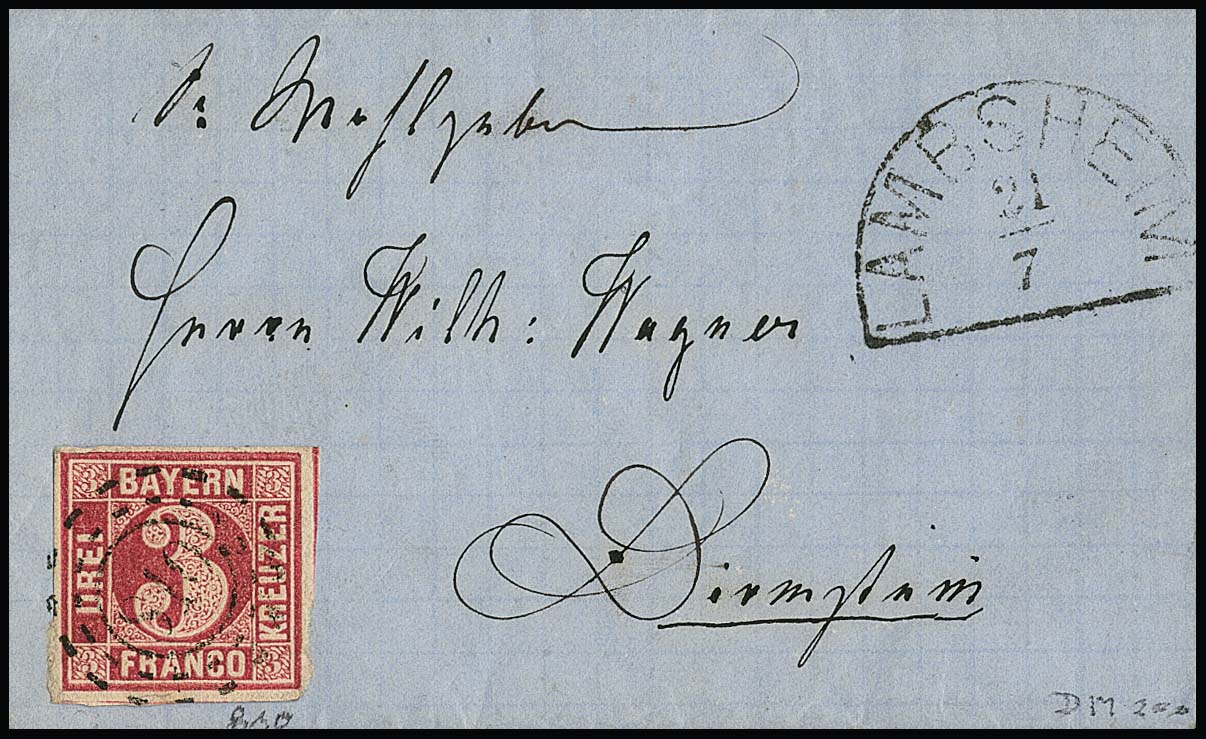 Sr Wohlgeboren
LAMBSHEIM
21
7
Herrn Wilh: Wagner
Dirmstein
BAYERN
DREI
3
KREUZER
FRANCO
3 3
3 3
DM